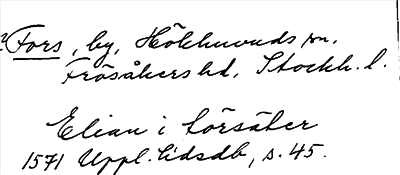 Fors, by, Hökhuvuds sn.
Frösåkers hd, Stockh. l.
Elian i Försäter
1571 Uppl. tidsdb, s. 45.